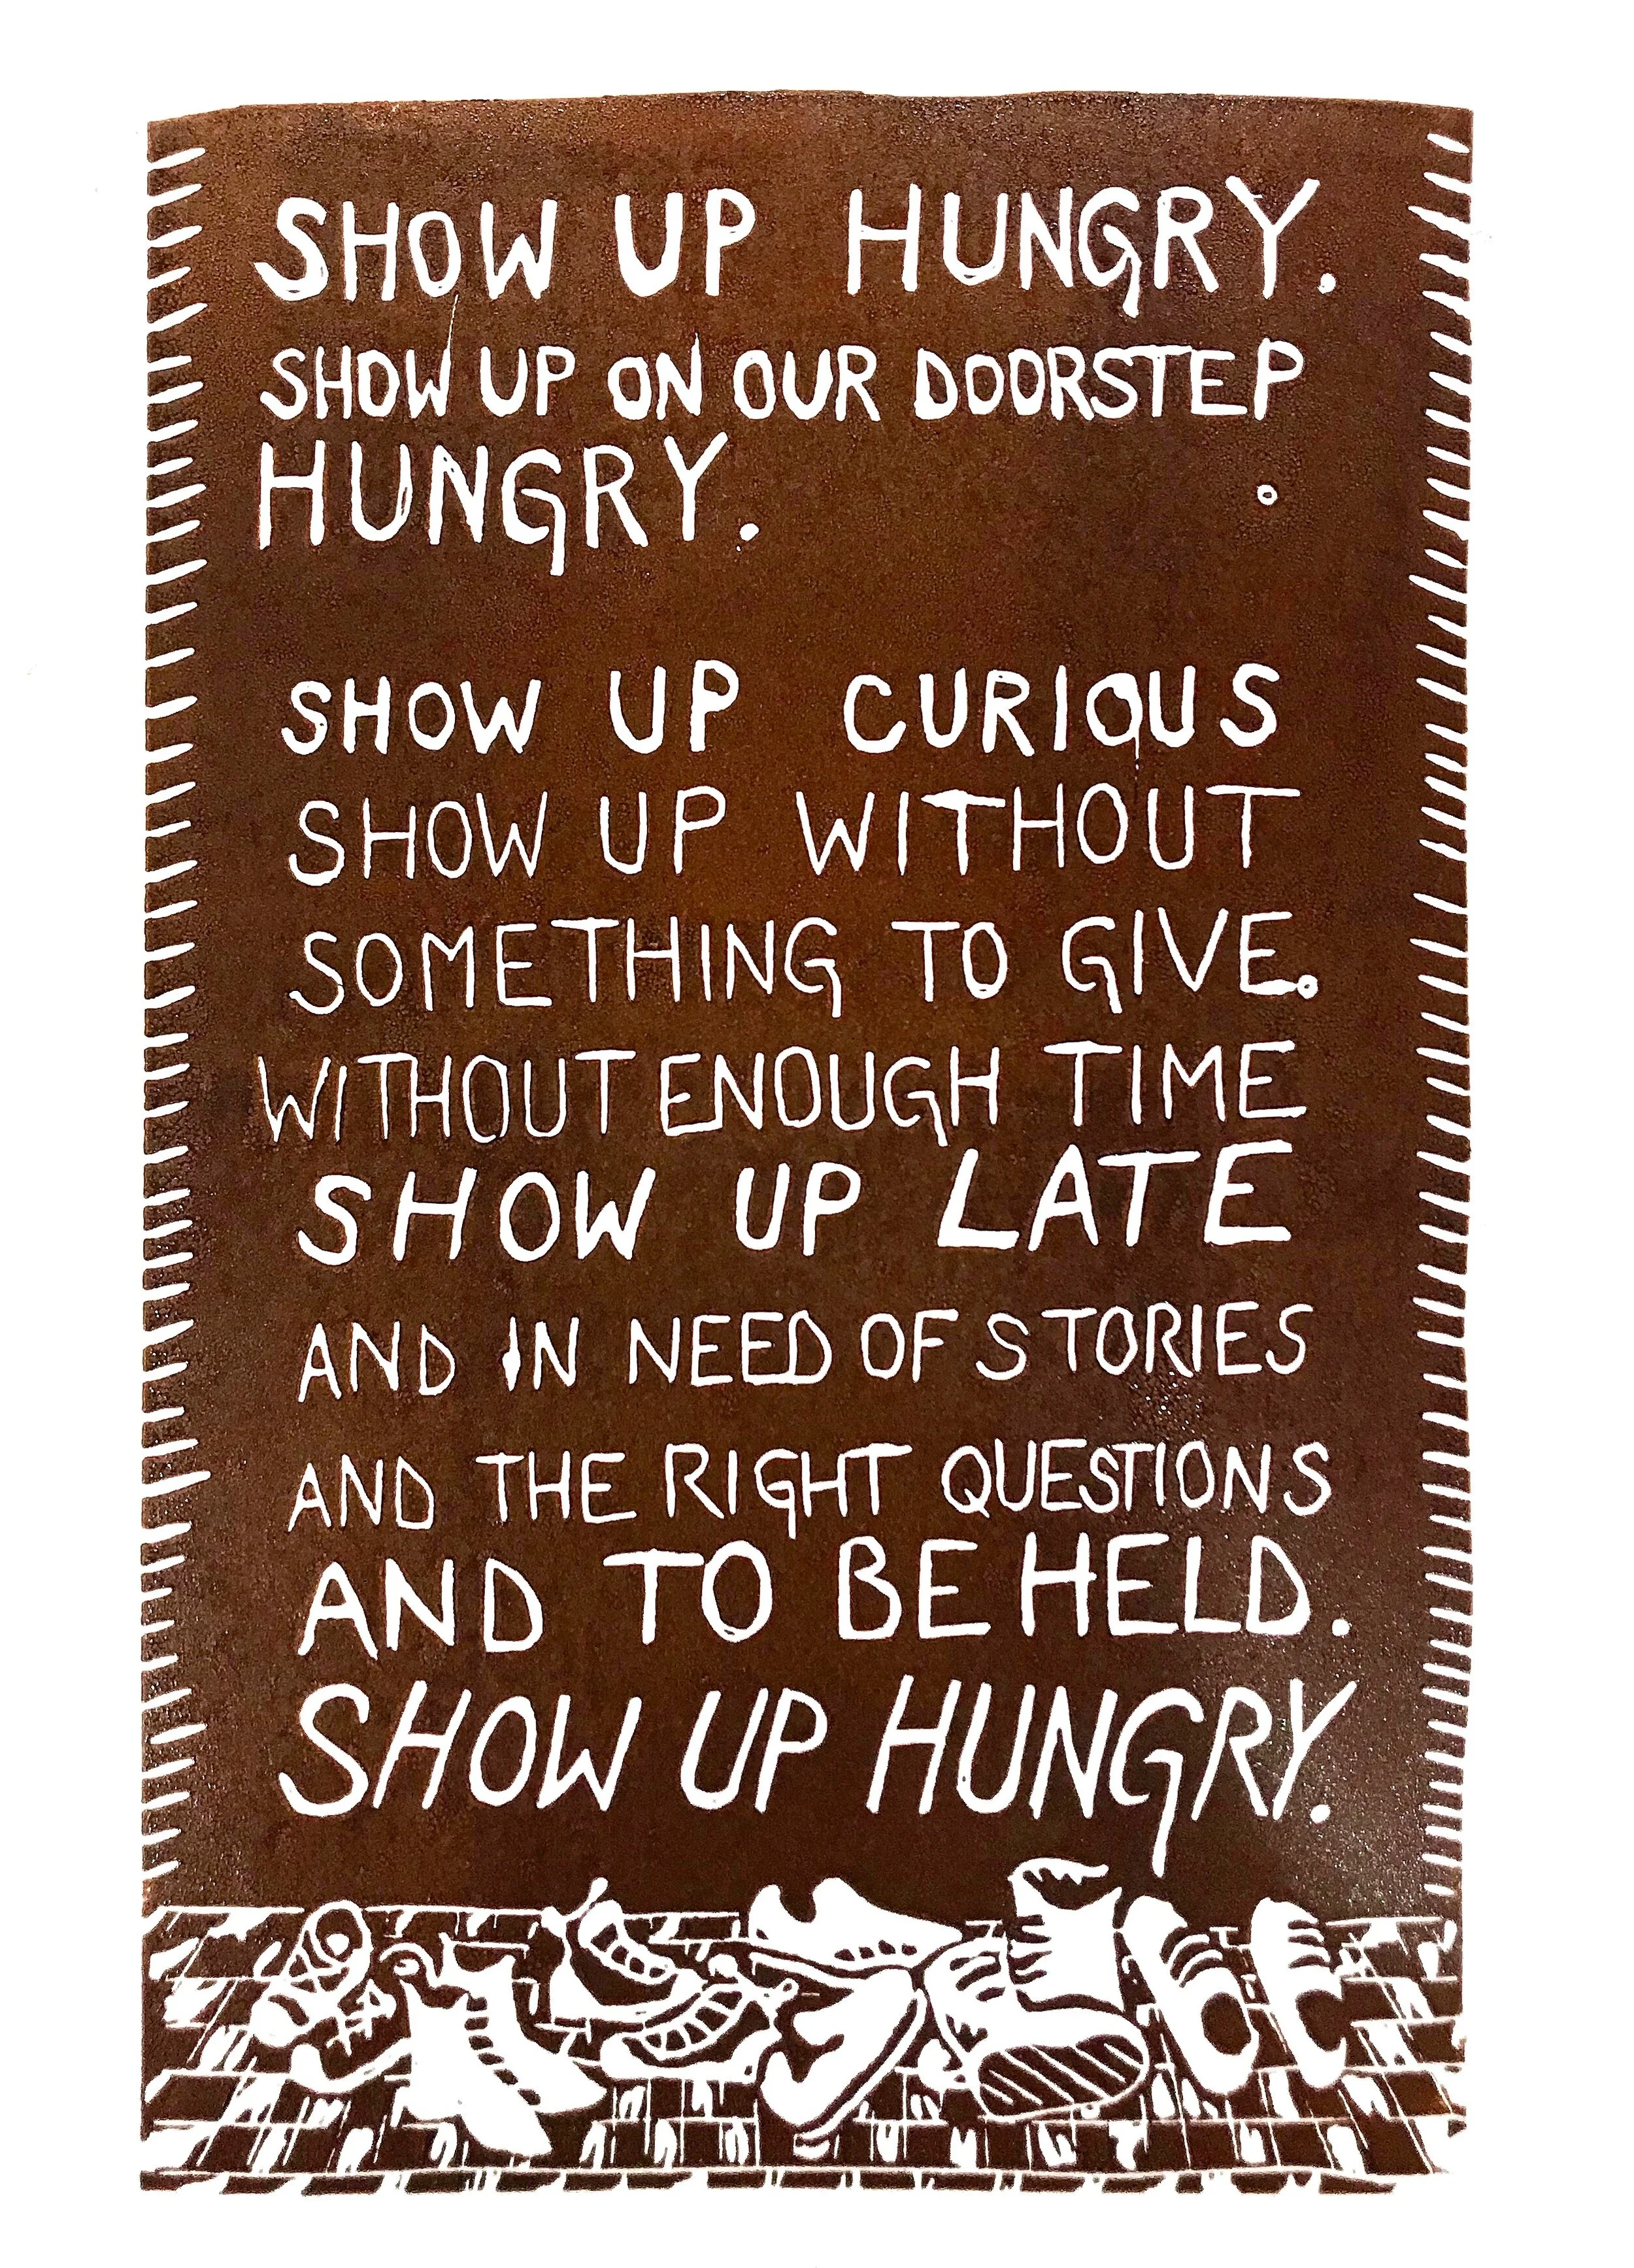 SHOW UP HUNGRY.
SHOW UP ON OUR DOORSTEP
HUNGRY.
SHOW UP CURIOUS
SHOW UP WITHOUT
SOMETHING TO GIVE.
WITHOUT ENOUGH TIME
SHOW UP LATE
AND IN NEED OF STORIES
AND THE RIGHT QUESTIONS
AND TO BE HELD.
SHOW UP HUNGRY.